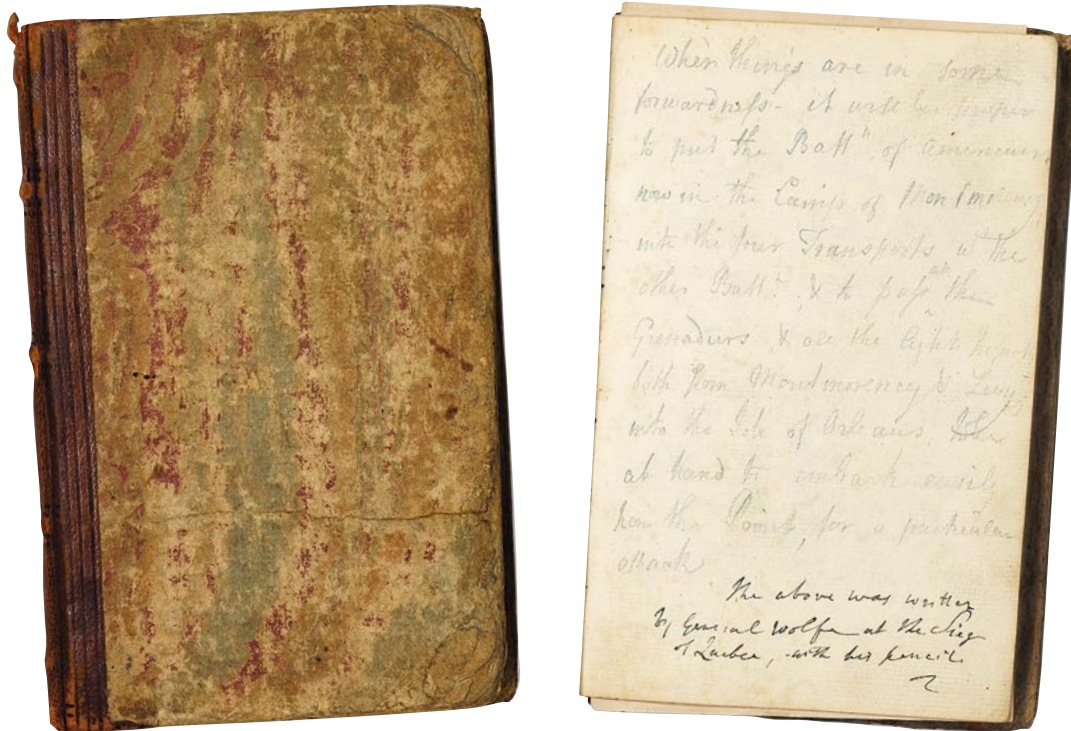 When things are in some
forwardness - it will be proper
to put the Batt.n of Americans
now in the Camp of Montmorency
into the four Transports wt the
other Batt.n, & to pass all the
Grenadiers, & all the light
both from Montmorency & Levy
into the Isle of Orleans,
at hand to embark easily
from the Point, for a particular
attack
The above was written
by General Wolfe at the Siege
of Quebec, with his pencil